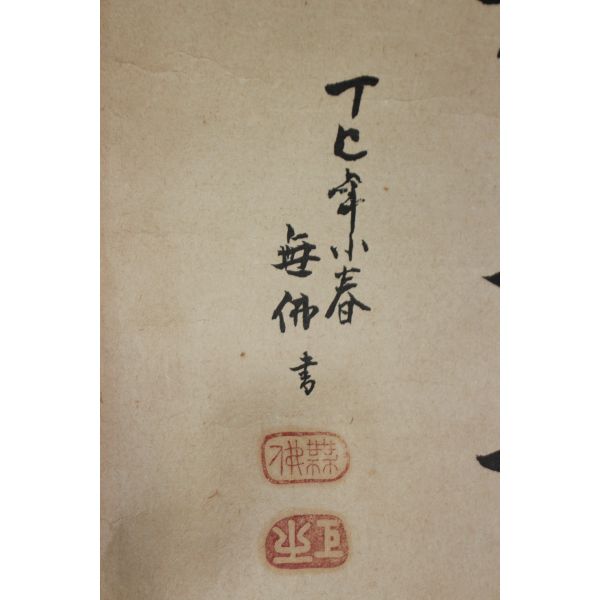 丁巳年小春
無佛書
無佛